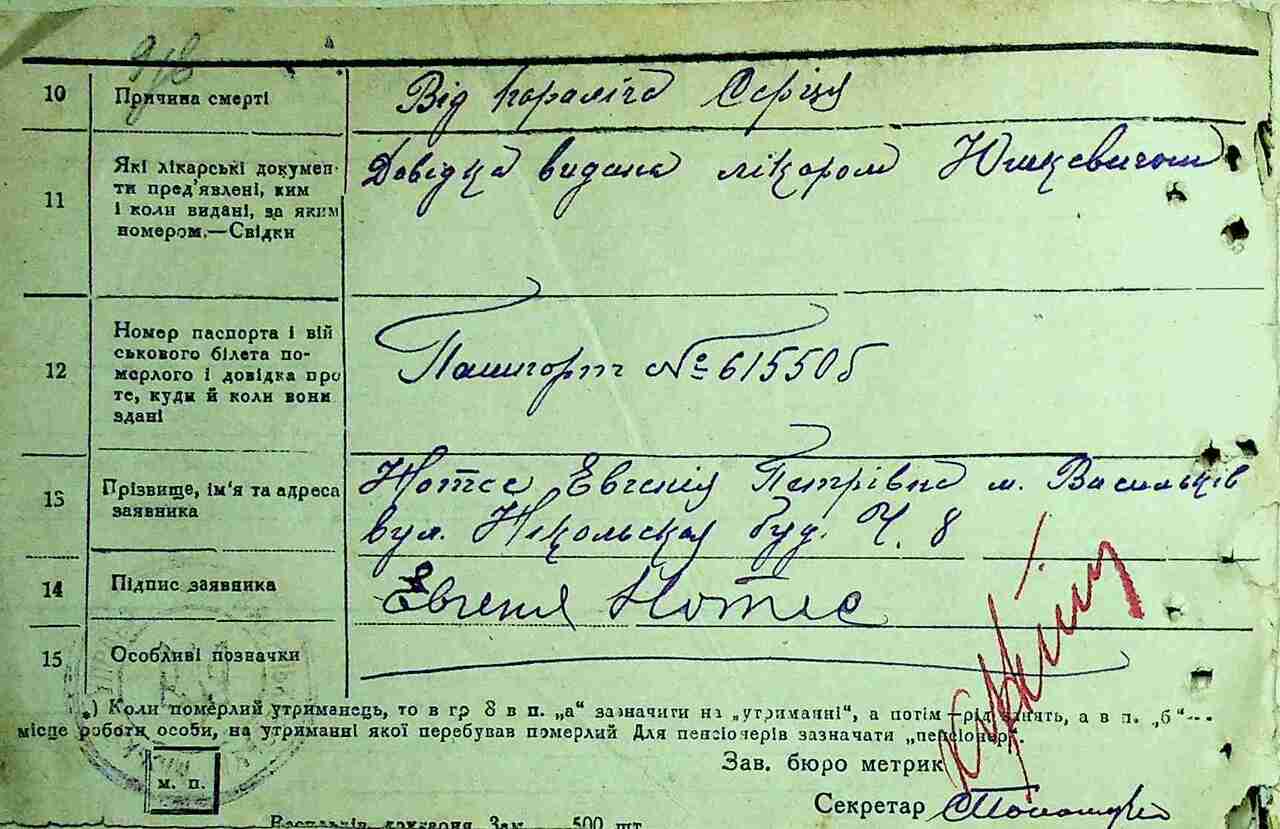 918
10 Причина смерті Від параліча Серця
11 Які лікарські докумен-
ти пред'явлені, ким
і коли видані, за яким
номером.—Свідки
Довідка видана лікаром Юшкевичом
12 Номер паспорта і вій
ськового білета по-
мерлого і довідка про
те, куди й коли вони
здані
Пашпорт № 615506
13 Прізвище, ім'я та адреса
заявника
Нотес Евгенія Петрівна м. Васильків
вул. Нікольская буд. Ч. 8
14 Підпис заявника Евгения Нотес
15 Особливі позначки
) Коли померлий утриманець, то в гр 8 в п. „а" зазначити на „утриманні", а потім—рід занять, а в п. „б"—
місце роботи особи, на утриманні якої перебував померлий Для пенсіонерів зазначати „пенсіонер".
м. п.
Зав. бюро метрик
Секретар
500 шт.